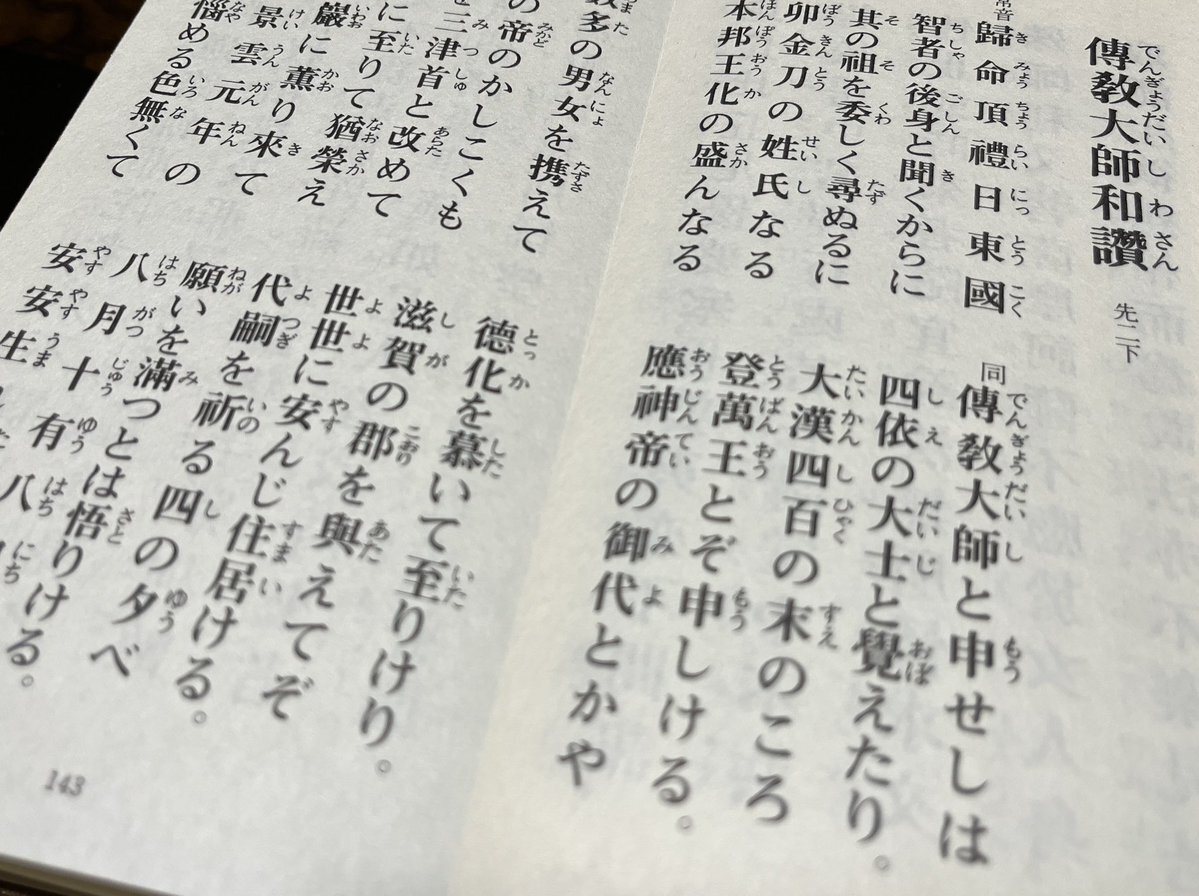 傳教大師和讚 先二下
歸命頂禮日東國 同 傳教大師と申せしは
智者の後身と聞くからに 四依の大士と覺えたり。
其の祖を委しく尋ぬるに 大漢四百の末のころ
卯金刀の姓氏なる 登萬王とぞ申しける。
本邦王化の盛んなる 應神帝の御代とかや
多の男女を携えて 德化を慕いて至りけり。
の帝のかしこくも 滋賀の郡を與えてぞ
を三津首と改めて 世世に安んじ住居ける。
に至りて猶榮え 代嗣を祈る四の夕べ
嚴に薫り來て 願いを滿つとは悟りける。
景雲元年の 八月十有八
惱める色無くて 安安生
143